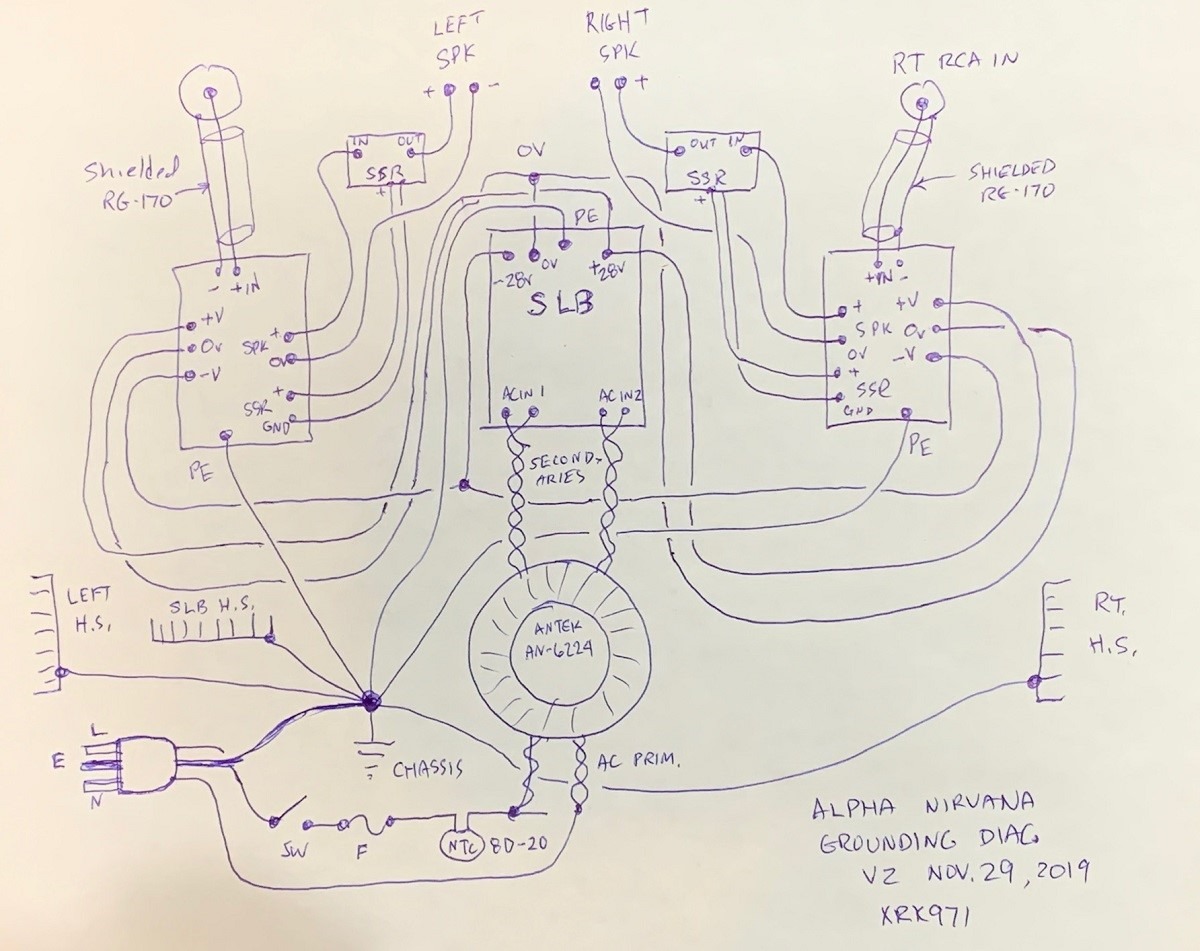 LEFT
SPK
+ -
RIGHT
SPK
+
RT RCA IN
Shielded
RG-170
IN OUT
SSR
+
0V
OUT IN
SSR
+
SHIELDED
RG-170
PE
-28V 0V +28V
SLB
AC IN 1 AC IN 2
- +IN
+V
0V
-V
SPK +
0V
SSR +
GND
PE
+IN -
+ +V
SPK 0V
0V -V
+
SSR
GND
PE
SECOND-
ARIES
LEFT
H.S.
SLB H.S.
ANTEK
AN-6224
RT.
H.S.
L
E
N
CHASSIS
AC PRIM.
SW F NTC 8D-20
ALPHA NIRVANA
GROUNDING DIAG.
V2 NOV. 29, 2019
XRK971